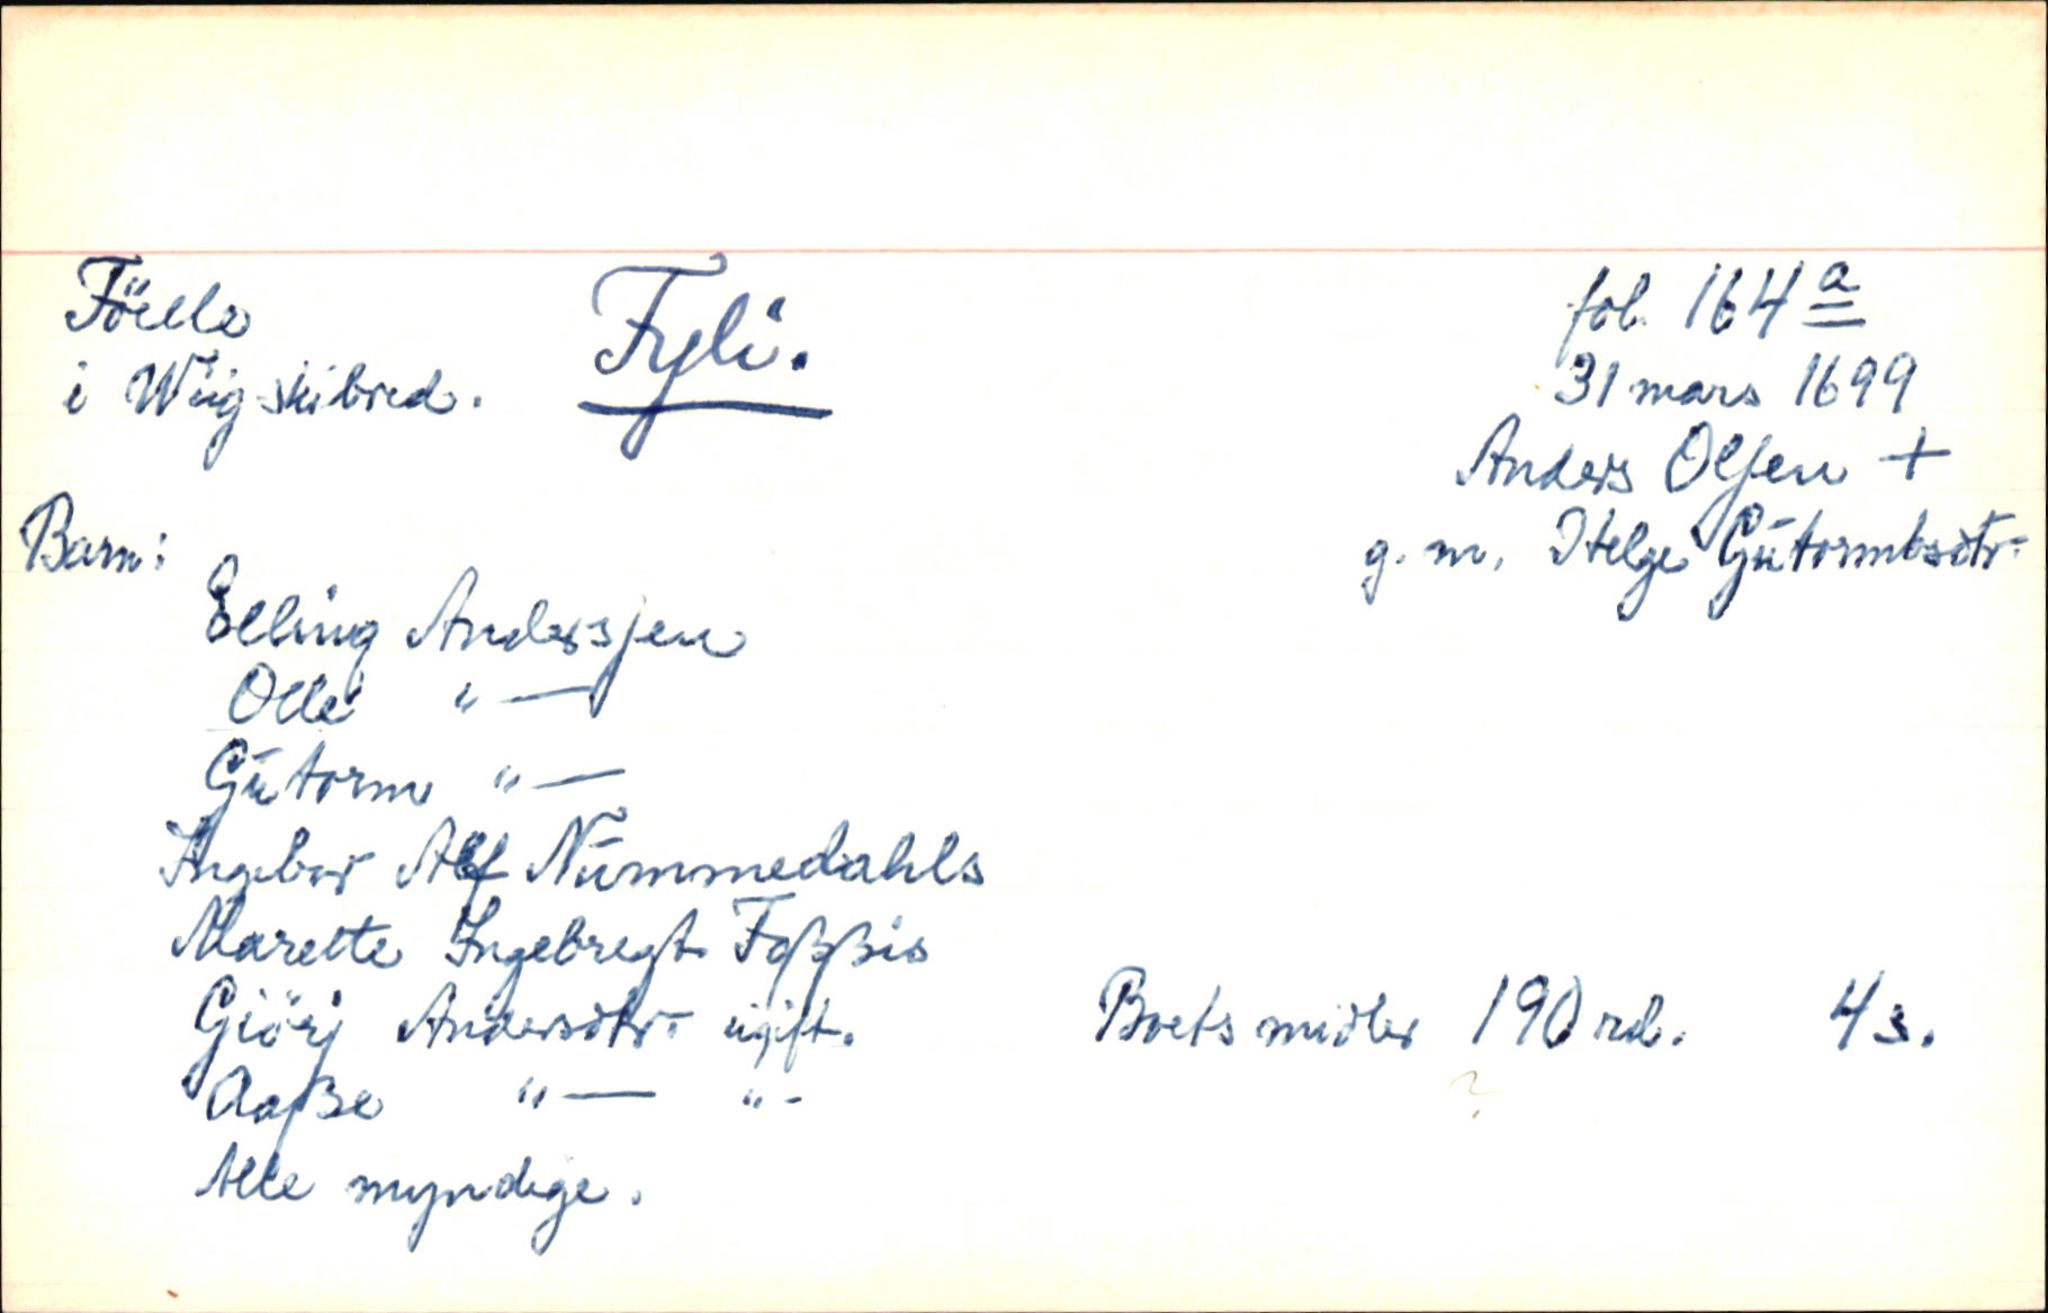 Föelle
i Wiig skibred.
Fyli.
fol. 164 a
31 mars 1699
Anders Olsen +
g. m. Helge Gutormbsdtr.
Barn:
Elling Anderssen
Olle " —
Gutorm " —
Ingebor Alf Nummedahls
Marette Ingebregt Foßßis
Giörj Andersdtr. ugift.
Boets midler 190 rd. 4 s.
?
Aaßse " — " -
Alle myndige.